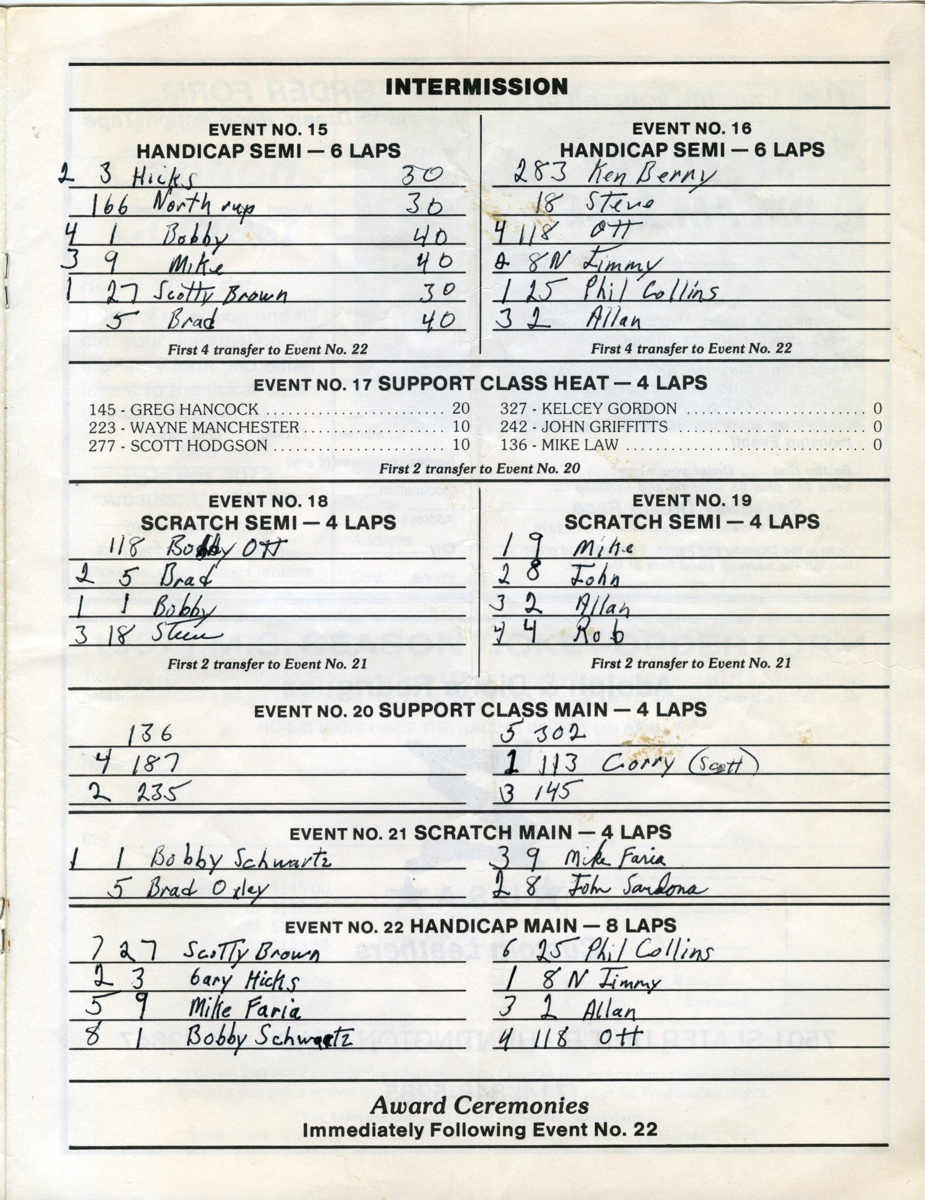 INTERMISSION
EVENT NO. 15
HANDICAP SEMI — 6 LAPS
2 3 Hicks 30
166 Northrup 30
4 1 Bobby 40
3 9 Mike 40
1 27 Scotty Brown 30
5 Brad 40
First 4 transfer to Event No. 22
EVENT NO. 16
HANDICAP SEMI — 6 LAPS
283 Ken Berny
18 Steve
4 118 Ott
2 8N Jimmy
1 25 Phil Collins
3 2 Allan
First 4 transfer to Event No. 22
EVENT NO. 17 SUPPORT CLASS HEAT — 4 LAPS
145 - GREG HANCOCK ........................... 20
223 - WAYNE MANCHESTER ..................... 10
277 - SCOTT HODGSON ......................... 10
327 - KELCEY GORDON ........................ 0
242 - JOHN GRIFFITTS ......................... 0
136 - MIKE LAW ............................... 0
First 2 transfer to Event No. 20
EVENT NO. 18
SCRATCH SEMI — 4 LAPS
118 Bobby Ott
2 5 Brad
1 1 Bobby
3 18 Steve
First 2 transfer to Event No. 21
EVENT NO. 19
SCRATCH SEMI — 4 LAPS
1 9 Mike
2 8 John
3 2 Allan
4 4 Rob
First 2 transfer to Event No. 21
EVENT NO. 20 SUPPORT CLASS MAIN — 4 LAPS
136
4 187
2 235
5 302
1 113 Gorry (Scott)
3 145
EVENT NO. 21 SCRATCH MAIN — 4 LAPS
1 1 Bobby Schwartz
5 Brad Oxley
3 9 Mike Faria
2 8 John Sandona
EVENT NO. 22 HANDICAP MAIN — 8 LAPS
7 27 Scotty Brown
2 3 Gary Hicks
5 9 Mike Faria
8 1 Bobby Schwartz
6 25 Phil Collins
1 8N Jimmy
3 2 Allan
4 118 Ott
Award Ceremonies
Immediately Following Event No. 22